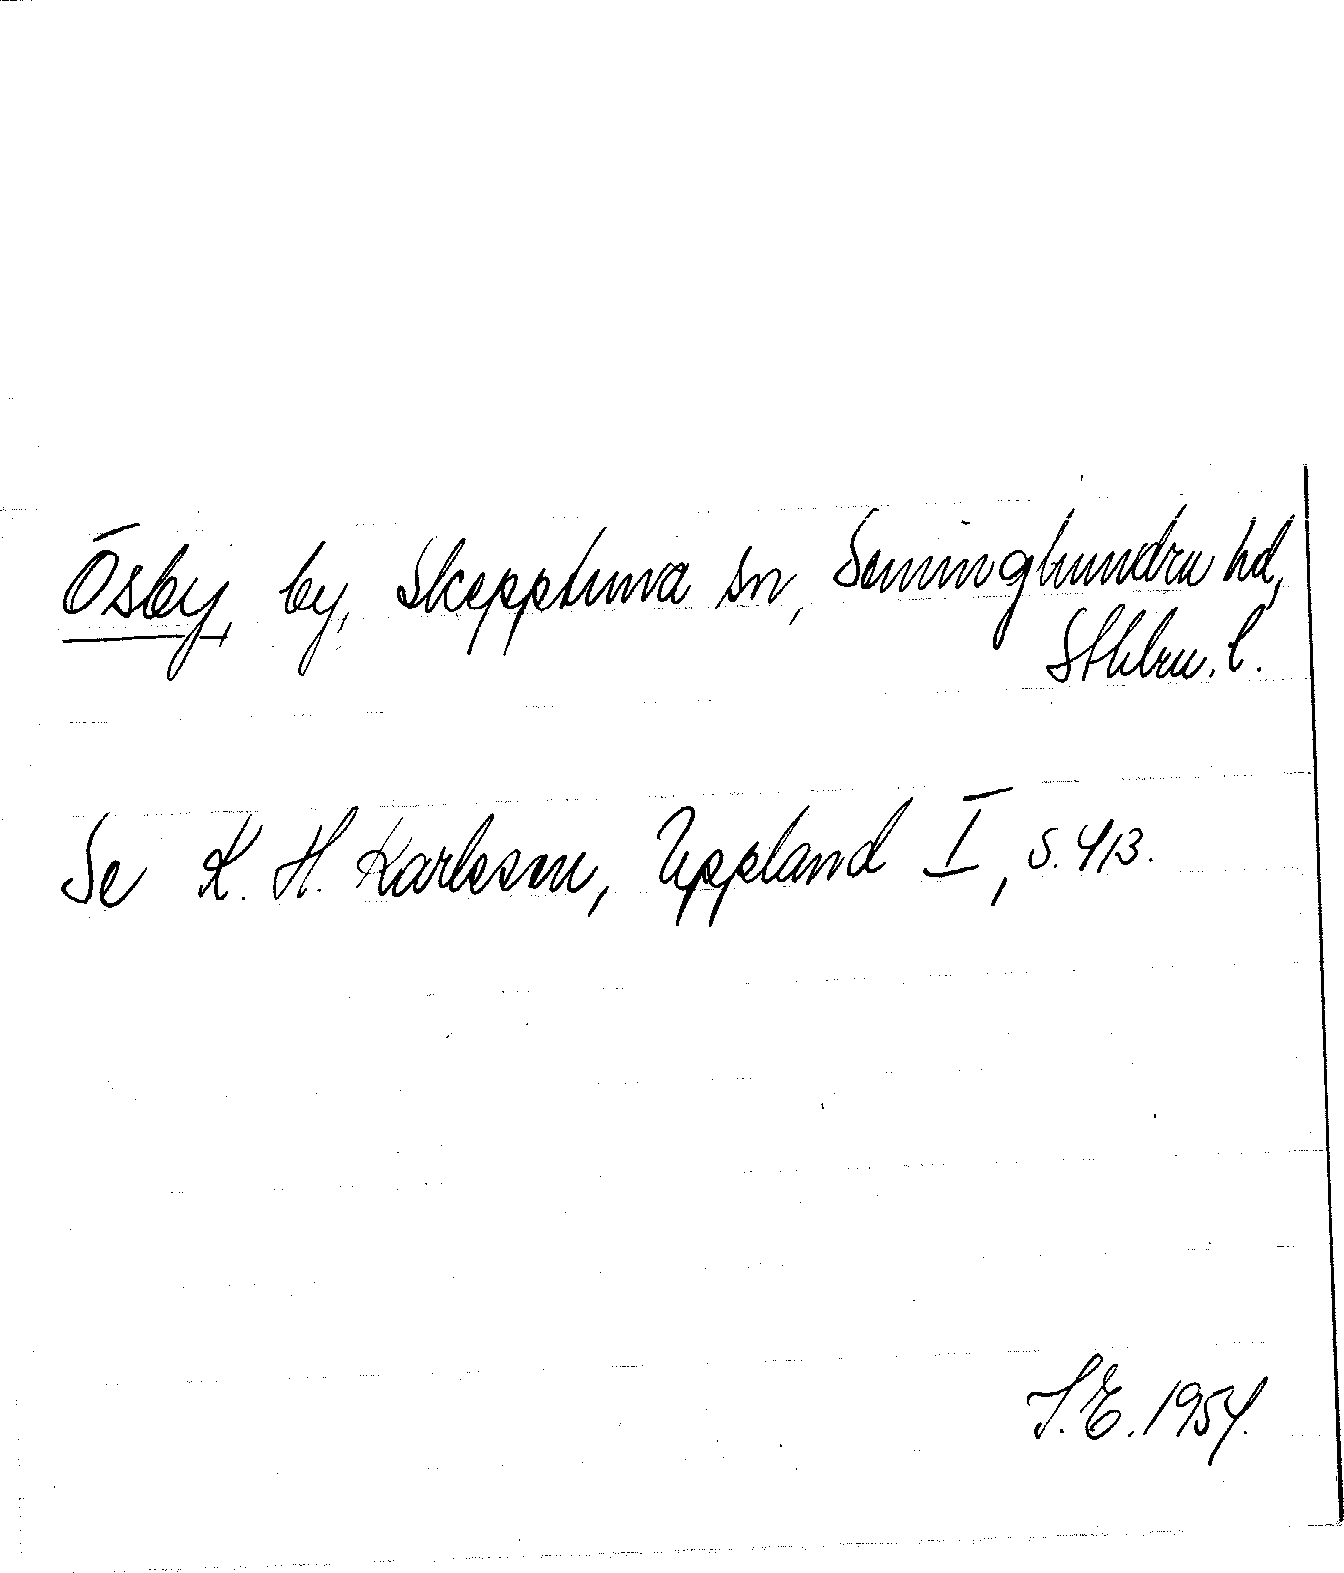 Ösby, by, Skepptuna sn, Seminghundra hd,
Sthlm. l.
Se K. H. Karlsson, Uppland I, s. 413.
S.E. 1954.